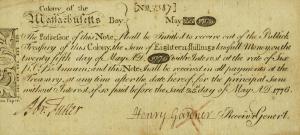 Colony of the
Massachusetts Bay May 25 1776
The Possessor of this Note, shall be Intitled to receive out of the Publick
Treasury of this Colony, the Sum of Eighteen shillings Lawful Money, on the
twenty fifth day of May A.D. 1779 with Interest at the rate of Six
Pr. Ct. Pr. Annum; and this Note shall be Received in all payments at the
Treasury, at any time after the date hereof, for the principal Sum
without Interest, if so paid before the day of May A.D. 1778.
Henry Gardner Receiver Genl.